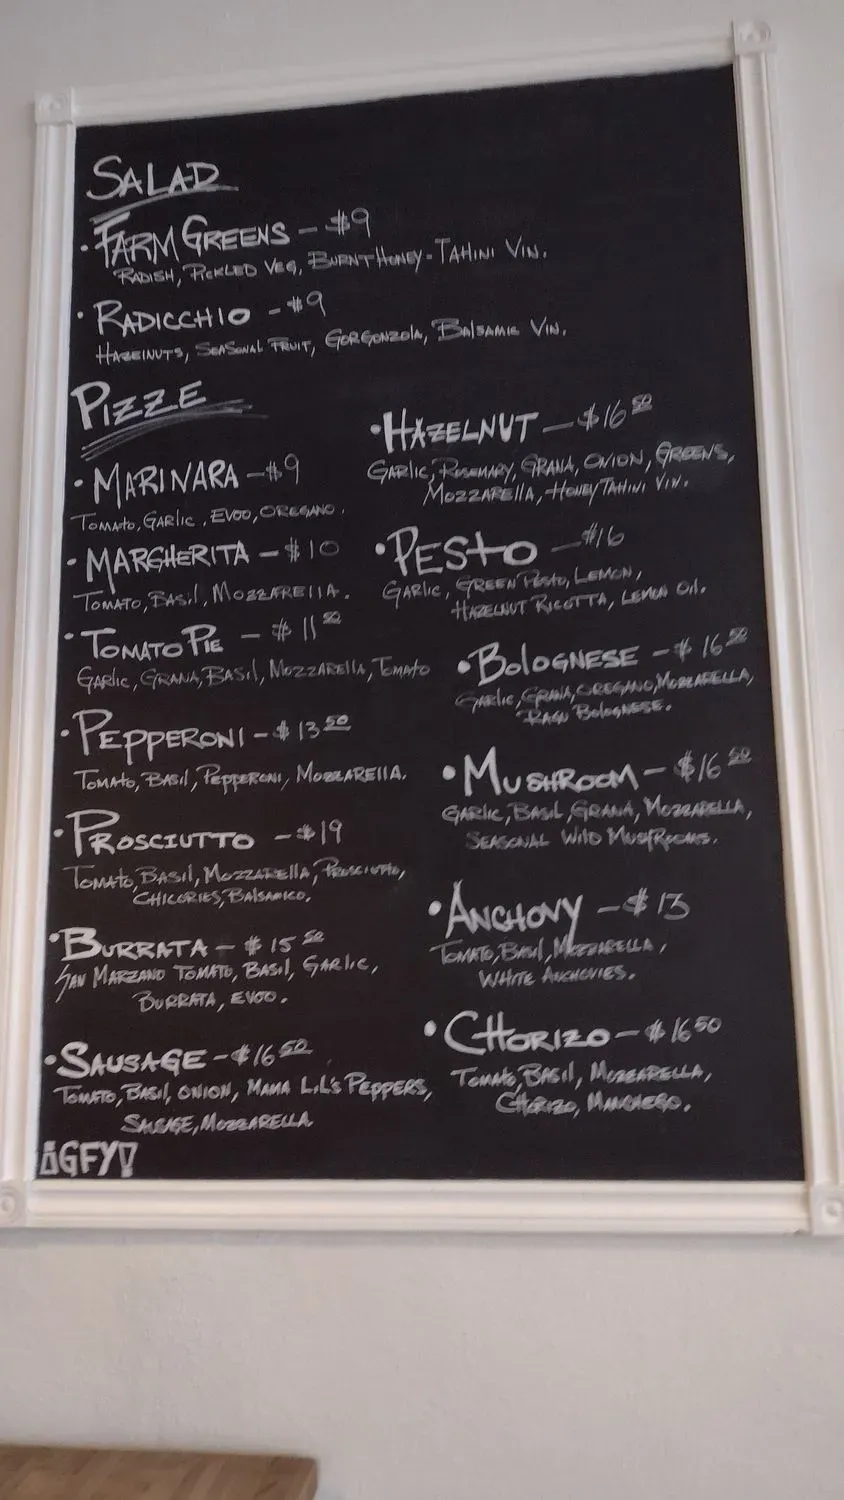 SALAD
• FARM GREENS - $9
RADISH, PICKLED VEG, BURNT HONEY - TAHINI VIN.
• RADICCHIO - $9
HAZELNUTS, SEASONAL FRUIT, GORGONZOLA, BALSAMIC VIN.
PIZZE
• MARINARA - $9
TOMATO, GARLIC, EVOO, OREGANO.
• MARGHERITA - $10
TOMATO, BASIL, MOZZARELLA.
• TOMATO PIE - $11 50
GARLIC, GRANA, BASIL, MOZZARELLA, TOMATO
• PEPPERONI - $13 50
TOMATO, BASIL, PEPPERONI, MOZZARELLA.
• PROSCIUTTO - $19
TOMATO, BASIL, MOZZARELLA, PROSCIUTTO,
CHICORIES, BALSAMICO.
• BURRATA - $15 50
SAN MARZANO TOMATO, BASIL, GARLIC,
BURRATA, EVOO.
• SAUSAGE - $16 50
TOMATO, BASIL, ONION, MAMA LIL'S PEPPERS,
SAUSAGE, MOZZARELLA
¡GFY!
• HAZELNUT - $16 50
GARLIC, ROSEMARY, GRANA, ONION, GREENS,
MOZZARELLA, HONEY TAHINI VIN.
• PESTO - $16
GARLIC, GREEN PESTO, LEMON,
HAZELNUT RICOTTA, LEMON OIL.
• BOLOGNESE - $16 50
GARLIC, GRANA, OREGANO, MOZZARELLA,
RAGU BOLOGNESE.
• MUSHROOM - $16 50
GARLIC, BASIL, GRANA, MOZZARELLA,
SEASONAL WILD MUSHROOMS.
• ANCHOVY - $13
TOMATO, BASIL, MOZZARELLA,
WHITE ANCHOVIES.
• CHORIZO - $16 50
TOMATO, BASIL, MOZZARELLA,
CHORIZO, MANCHEGO.